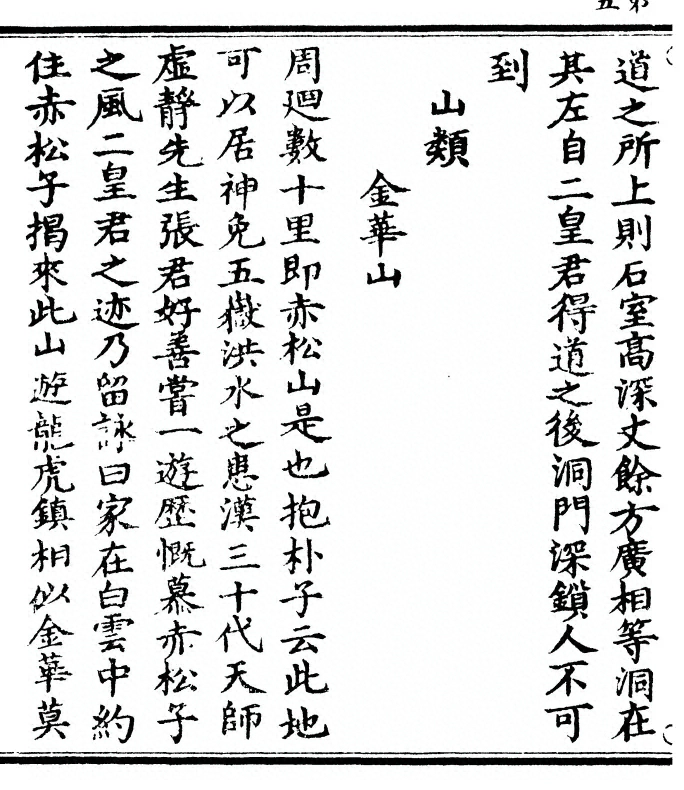 道之所上則石室高深丈餘方廣相等洞在
其左自二皇君得道之後洞門深鎖人不可
到
山類
金華山
周廻數十里即赤松山是也抱朴子云此地
可以居神免五嶽洪水之患漢三十代天師
虛靜先生張君好善嘗一遊歷慨慕赤松子
之風二皇君之迹乃留詠曰家在白雲中約
住赤松子揭來此山遊龍虎鎮相似金華莫